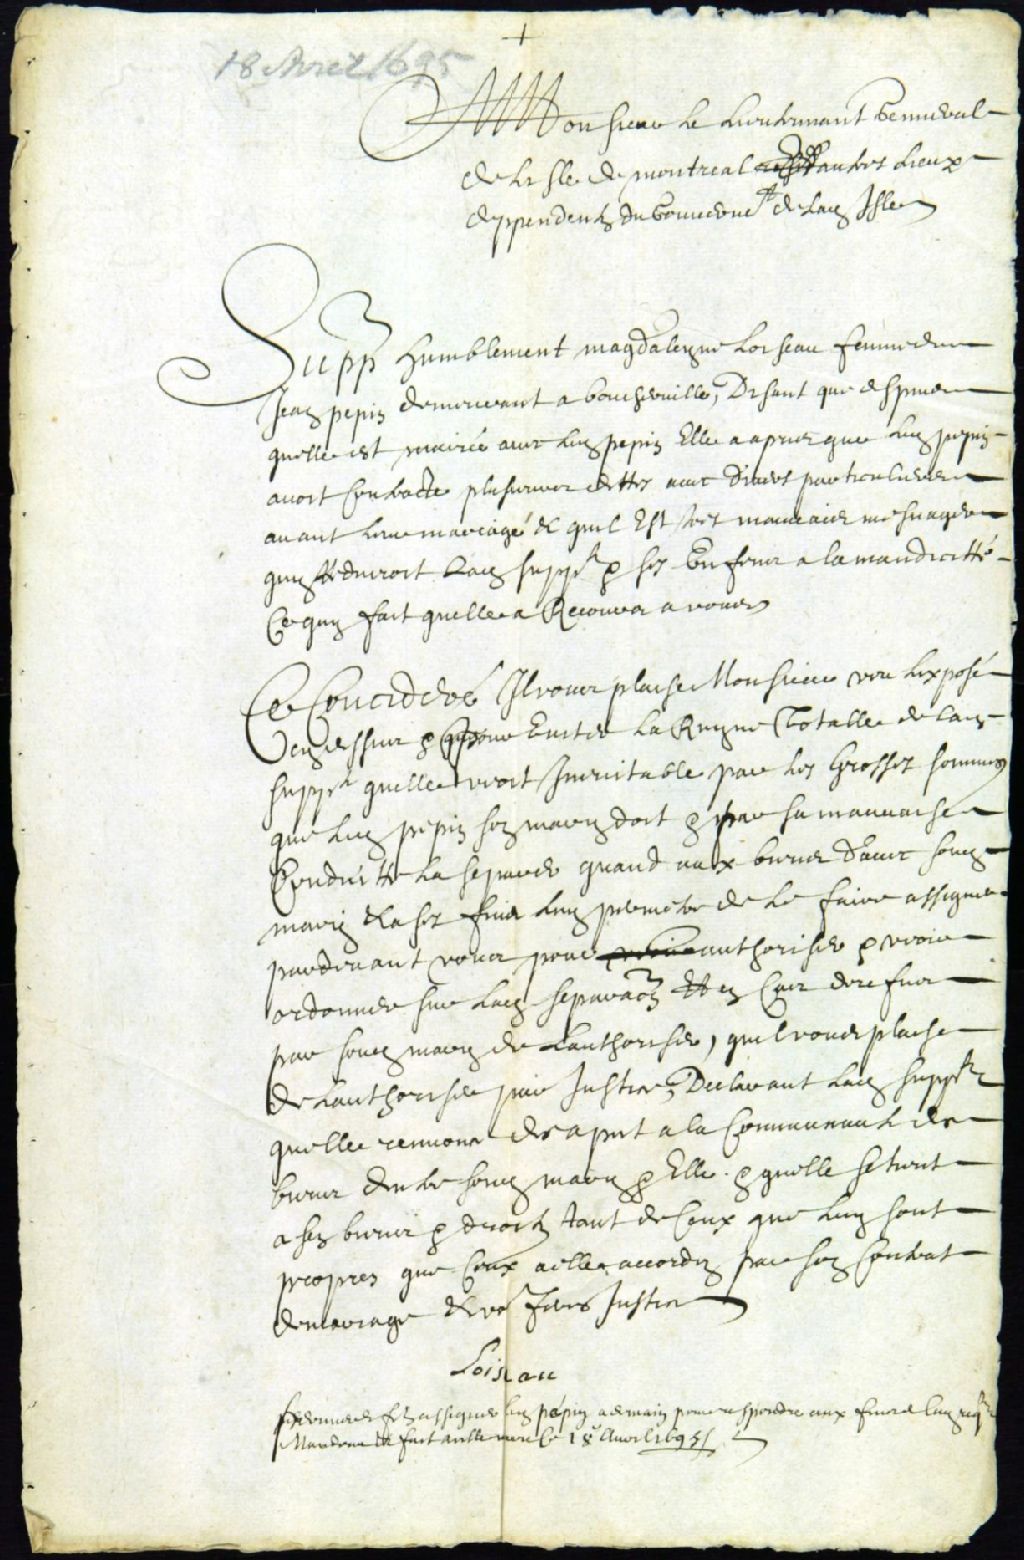 18 Avril 1695
Monsieur le Lieutenant General
de Lisle de montreal et autres Lieux
deppendentz du Gouvernemt de lad Isle
Supp humblement magdaleyne Loiseau femme de
Jean pepin demeurant a boucherville, Disant que depuis
quelle est mairiée avec led pepin Elle a apris que led pepin
avoit Contracté plusieurs dettes avec divers particuliers
avant leur mariagé et quil Est tres mauvais mesnager
quy Reduiroit lad suppte & ses Enfens a la mandicitté
Ce quy fait quelle a Recours a vous
Ce Concideré Il vous plaise Monsieur veu Lexposé
cy dessus & pour Eviter la Ruyne Totalle de lad
suppte quelle voit Inevitable par les Grosses sommes
que led pepin son mary doit & par sa mauvaise
Conduitte la separer quand aux biens davec sond
mary et a ses fins luy permetre de le faire assigner
pardevant vous pour authoriser & voir
ordonner sur lad separaon Et en Cas de refus
par sond mary de Lauthoriser, quil vous plaise
de Lauthoriser par Justice, Declarant lad suppte
quelle renonce des apnt a la Communauté de
biens dentre sond mary & Elle & quelle se tient
a ses biens & droitz tant de Ceux que luy sont
propres que Ceux a elle accordez par son Contrat
de mariage Et vs feres Justice
Loiseau
soit assigner led pepin a demain pour respondre aux fins de lad reqte
Mandons &c fait a ville marie le 18e Avril 1695